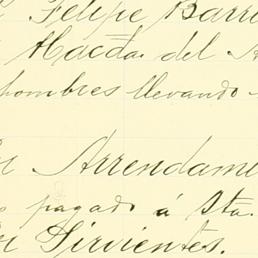 Felipe Barr
Hacda. del A
hombres llevando
Arrendami
pagado á Sta.
Sirvientes.